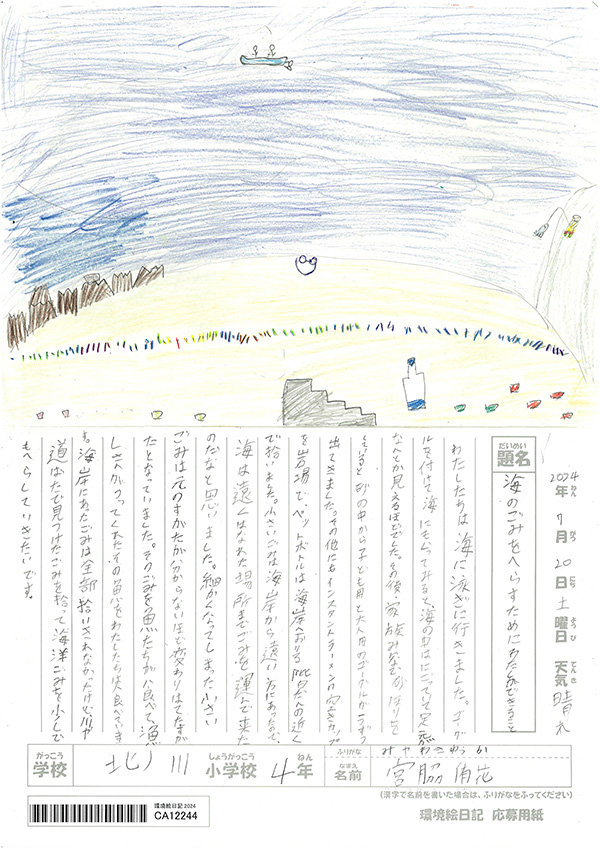 2024年ねん 7月がつ 20日にち 土曜日ようび 天気てんき 晴れ
だいめい 題名 海のごみをへらすためにわたしができること
わたしたちは海に泳ぎに行きました。ゴーグ
ルを付けて海にもぐってみると、海の中はにごっていて足が
なんとか見えるほどでした。その後、家族みんなで砂ほりをし
ていると砂の中から子ども用と大人用のゴーグルが一つずつ
出てきました。その他にもインスタントラーメンの空きカップ
を岩場で、ペットボトルは海岸へおりる階だんの近く
で拾いました。小さいごみは海岸から遠い方にあったので、
海は遠くはなれた場所までごみを運んで来た
のだなと思いました。細かくなってしまった小さい
ごみは元のすがたが分からないほど変わりはてたすが
たとなっていました。そのごみを魚たちが食べて、漁
しさんがつってくれたその魚をわたしたちは食べていま
す。海岸にあったごみは全部拾いきれなかったけど、川や
道ばたで見つけたごみを拾って海洋ごみを少しで
もへらしていきたいです。
がっこう 学校 北ノ川 しょうがっこう 小学校 4 ねん 年 ふりがな みやわきゆうか なまえ 名前 宮脇 侑花
(漢字で名前を書いた場合は、ふりがなをふってください)
環境絵日記2024
CA12244
環境絵日記 応募用紙